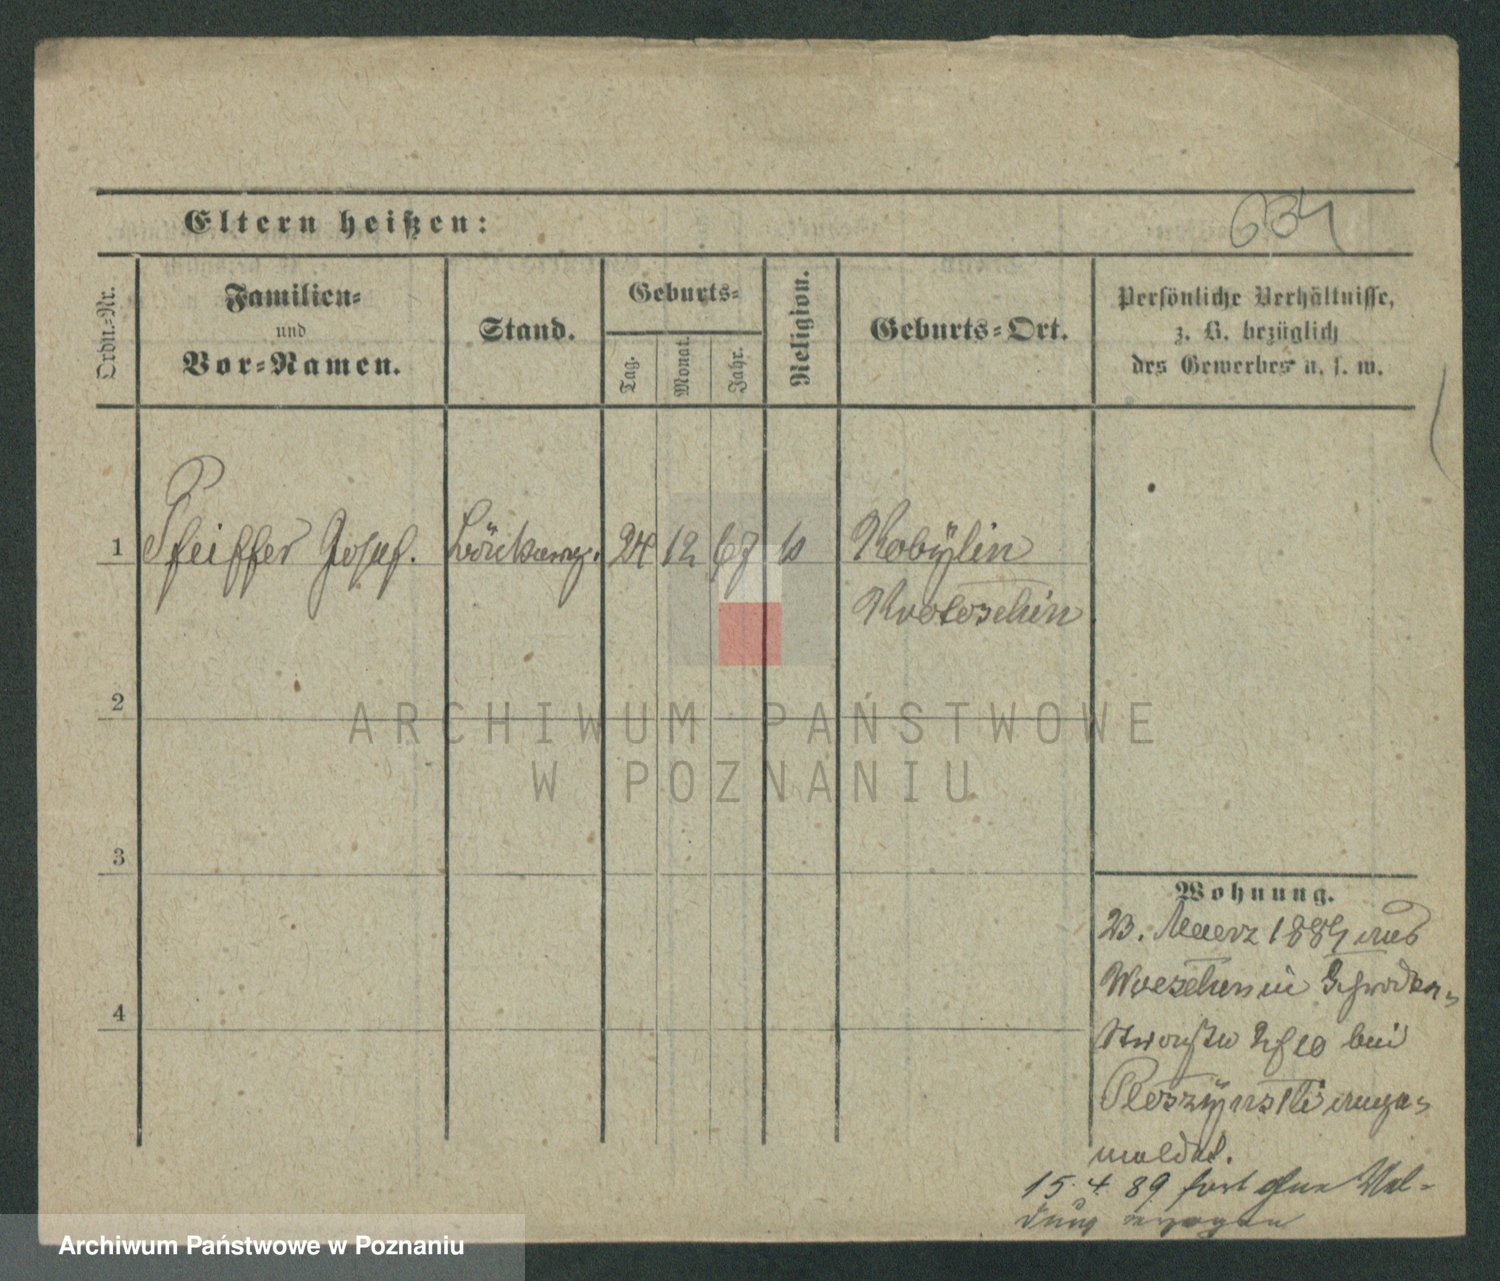 Eltern heißen:
634
Ordn.-Nr.
Familien-
und
Vor-Namen.
Stand.
Geburts-
Tag.
Monat.
Jahr.
Religion.
Geburts-Ort.
Persönliche Verhältnisse,
z. B. bezüglich
des Gewerbes u. s. w.
1 Pfeiffer Josef. 24 12 67 k Kobÿlin
Krotoschin
2
3
4
Wohnung.
23. Maerz 1889 aus
Wreschen in Schrodka-
bei
ange-
meldet.
15. 4. 89 fort ohne Mel-
dung
ARCHIWUM PAŃSTWOWE
W POZNANIU
Archiwum Państwowe w Poznaniu